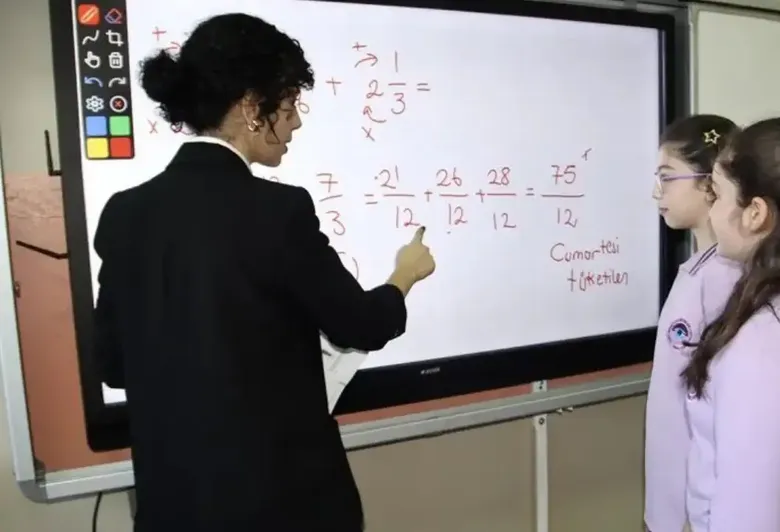 + +
6 + 2 1/3 =
x x
7/3 = 21/12 + 26/12 + 28/12 = 75/12
Cumartesi
tüketilen